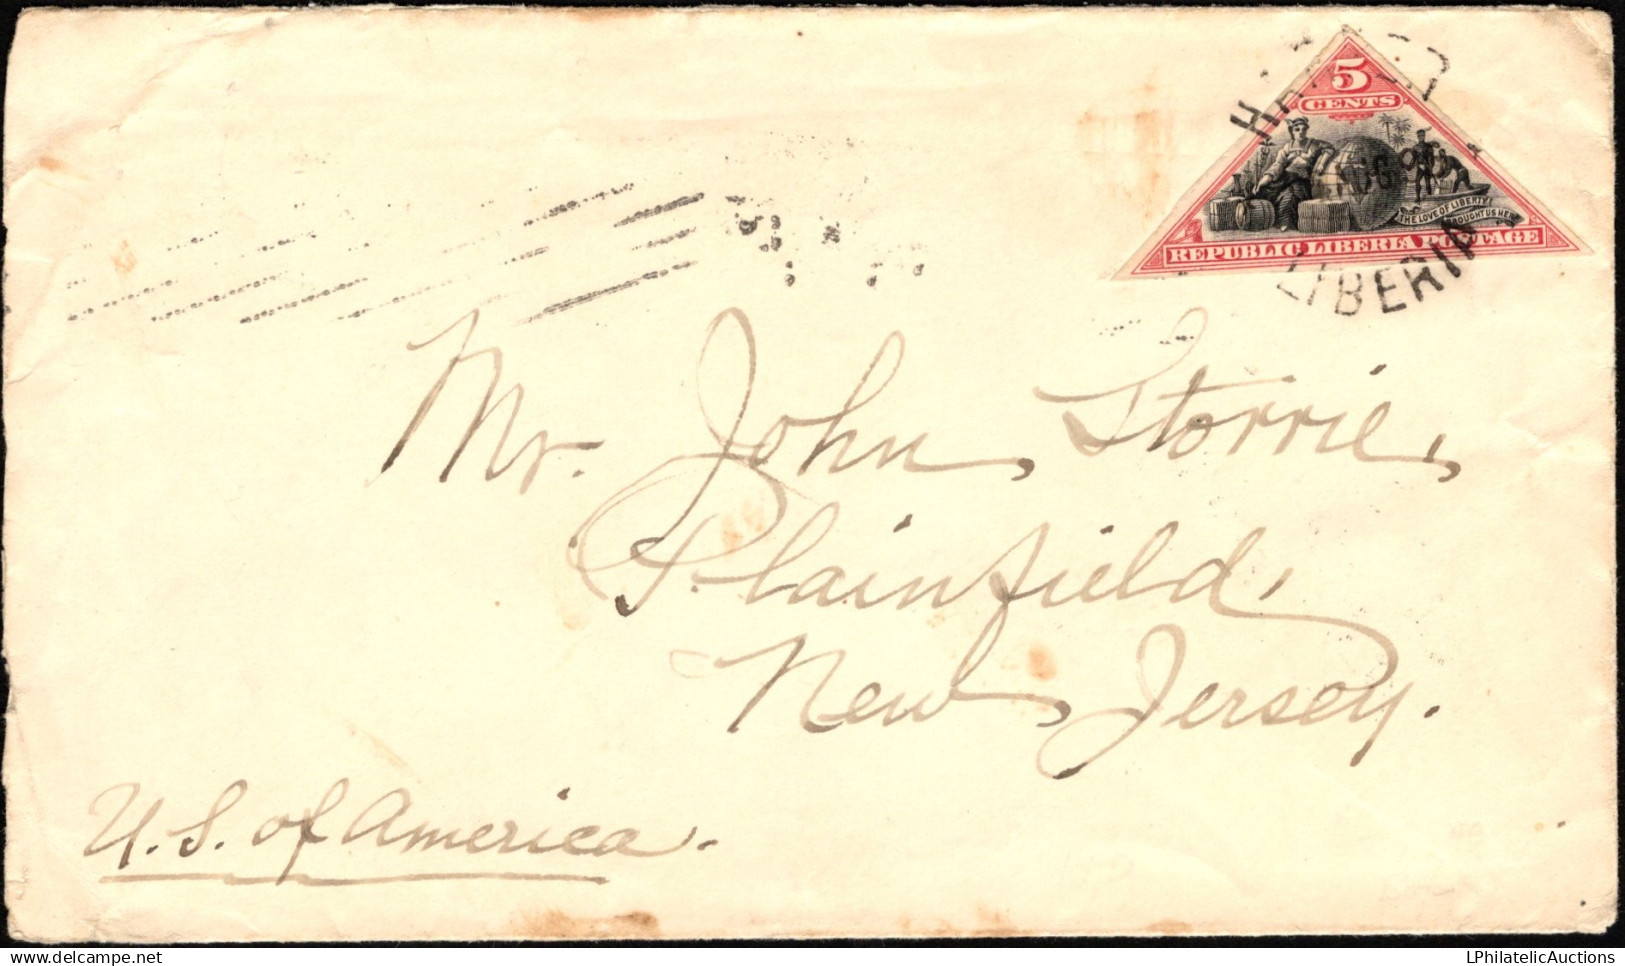 5
CENTS
THE LOVE OF LIBERTY
REPUBLIC LIBERIA POSTAGE
LIBERIA
Mr. John Storrie,
Plainfield,
New Jersey.
U. S. of America.
LPhilatelicAuctions